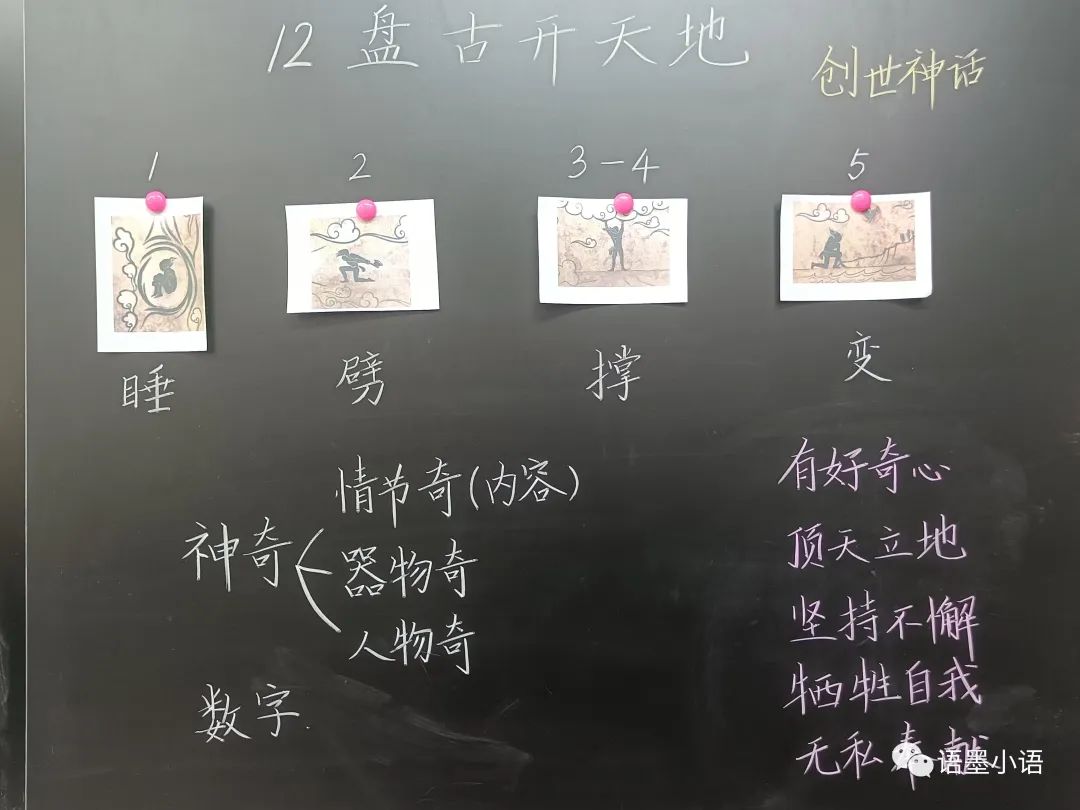 12 盘古开天地
创世神话
1 2 3-4 5
睡 劈 撑 变
神奇
情节奇(内容)
器物奇
人物奇
数字
有好奇心
顶天立地
坚持不懈
牺牲自我
无私奉献
语墨小语